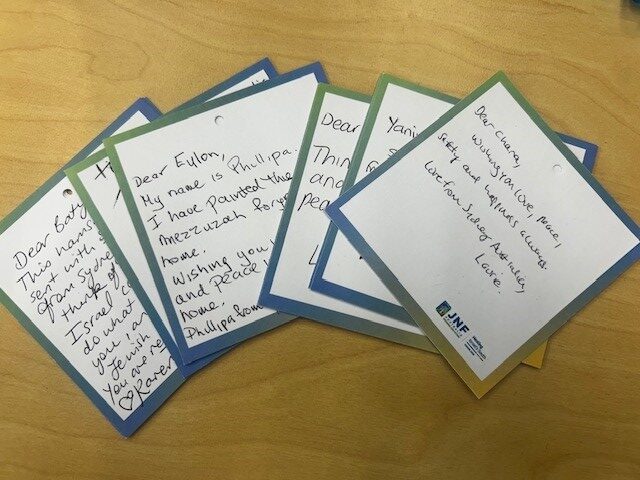 Dear Baty
This hams
sent with s
from Sydne
think of
Israel co
do what
you! an
Jewish
You are ne
♡Karen
Dear Eylon,
My name is Phillipa.
I have painted the
mezzuzah for y
home.
Wishing you
and peace i
home.
Phillipa from
Dear
Thin
and
pea
L
Yaniv
Dear Chana,
Wishing you love, peace,
safety and happiness always.
Love from Sydney Australia,
Laurie.
JNF